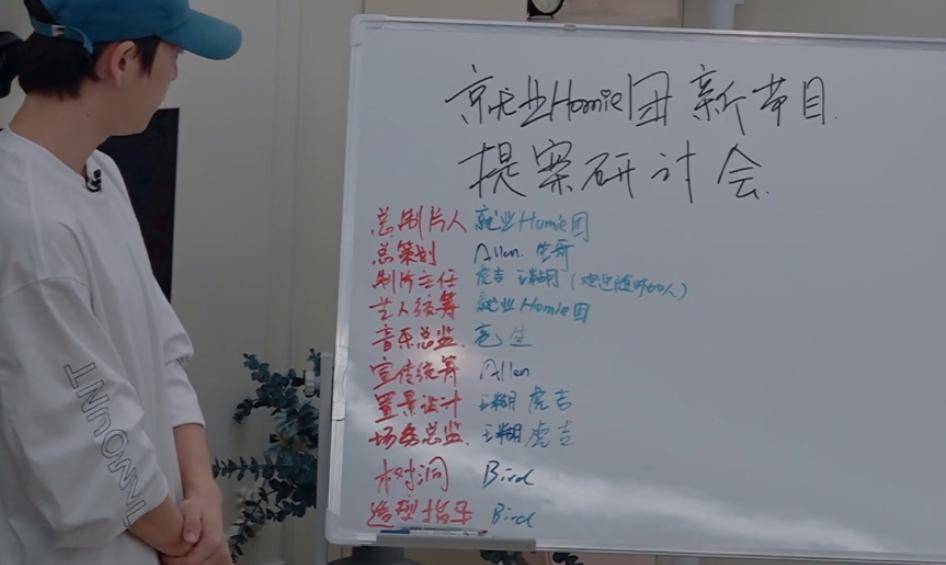 就业Homie团新节目
提案研讨会
总制片人 就业Homie团
总策划 Allen. 生哥
制片主任 虎吉 王糊(欢迎随时加入)
艺人统筹 就业Homie团
音乐总监. 亮 生
宣传统筹 Allen
置景设计 王糊 虎吉
场务总监. 王糊 虎吉
树洞 Bird
造型指导 Bird